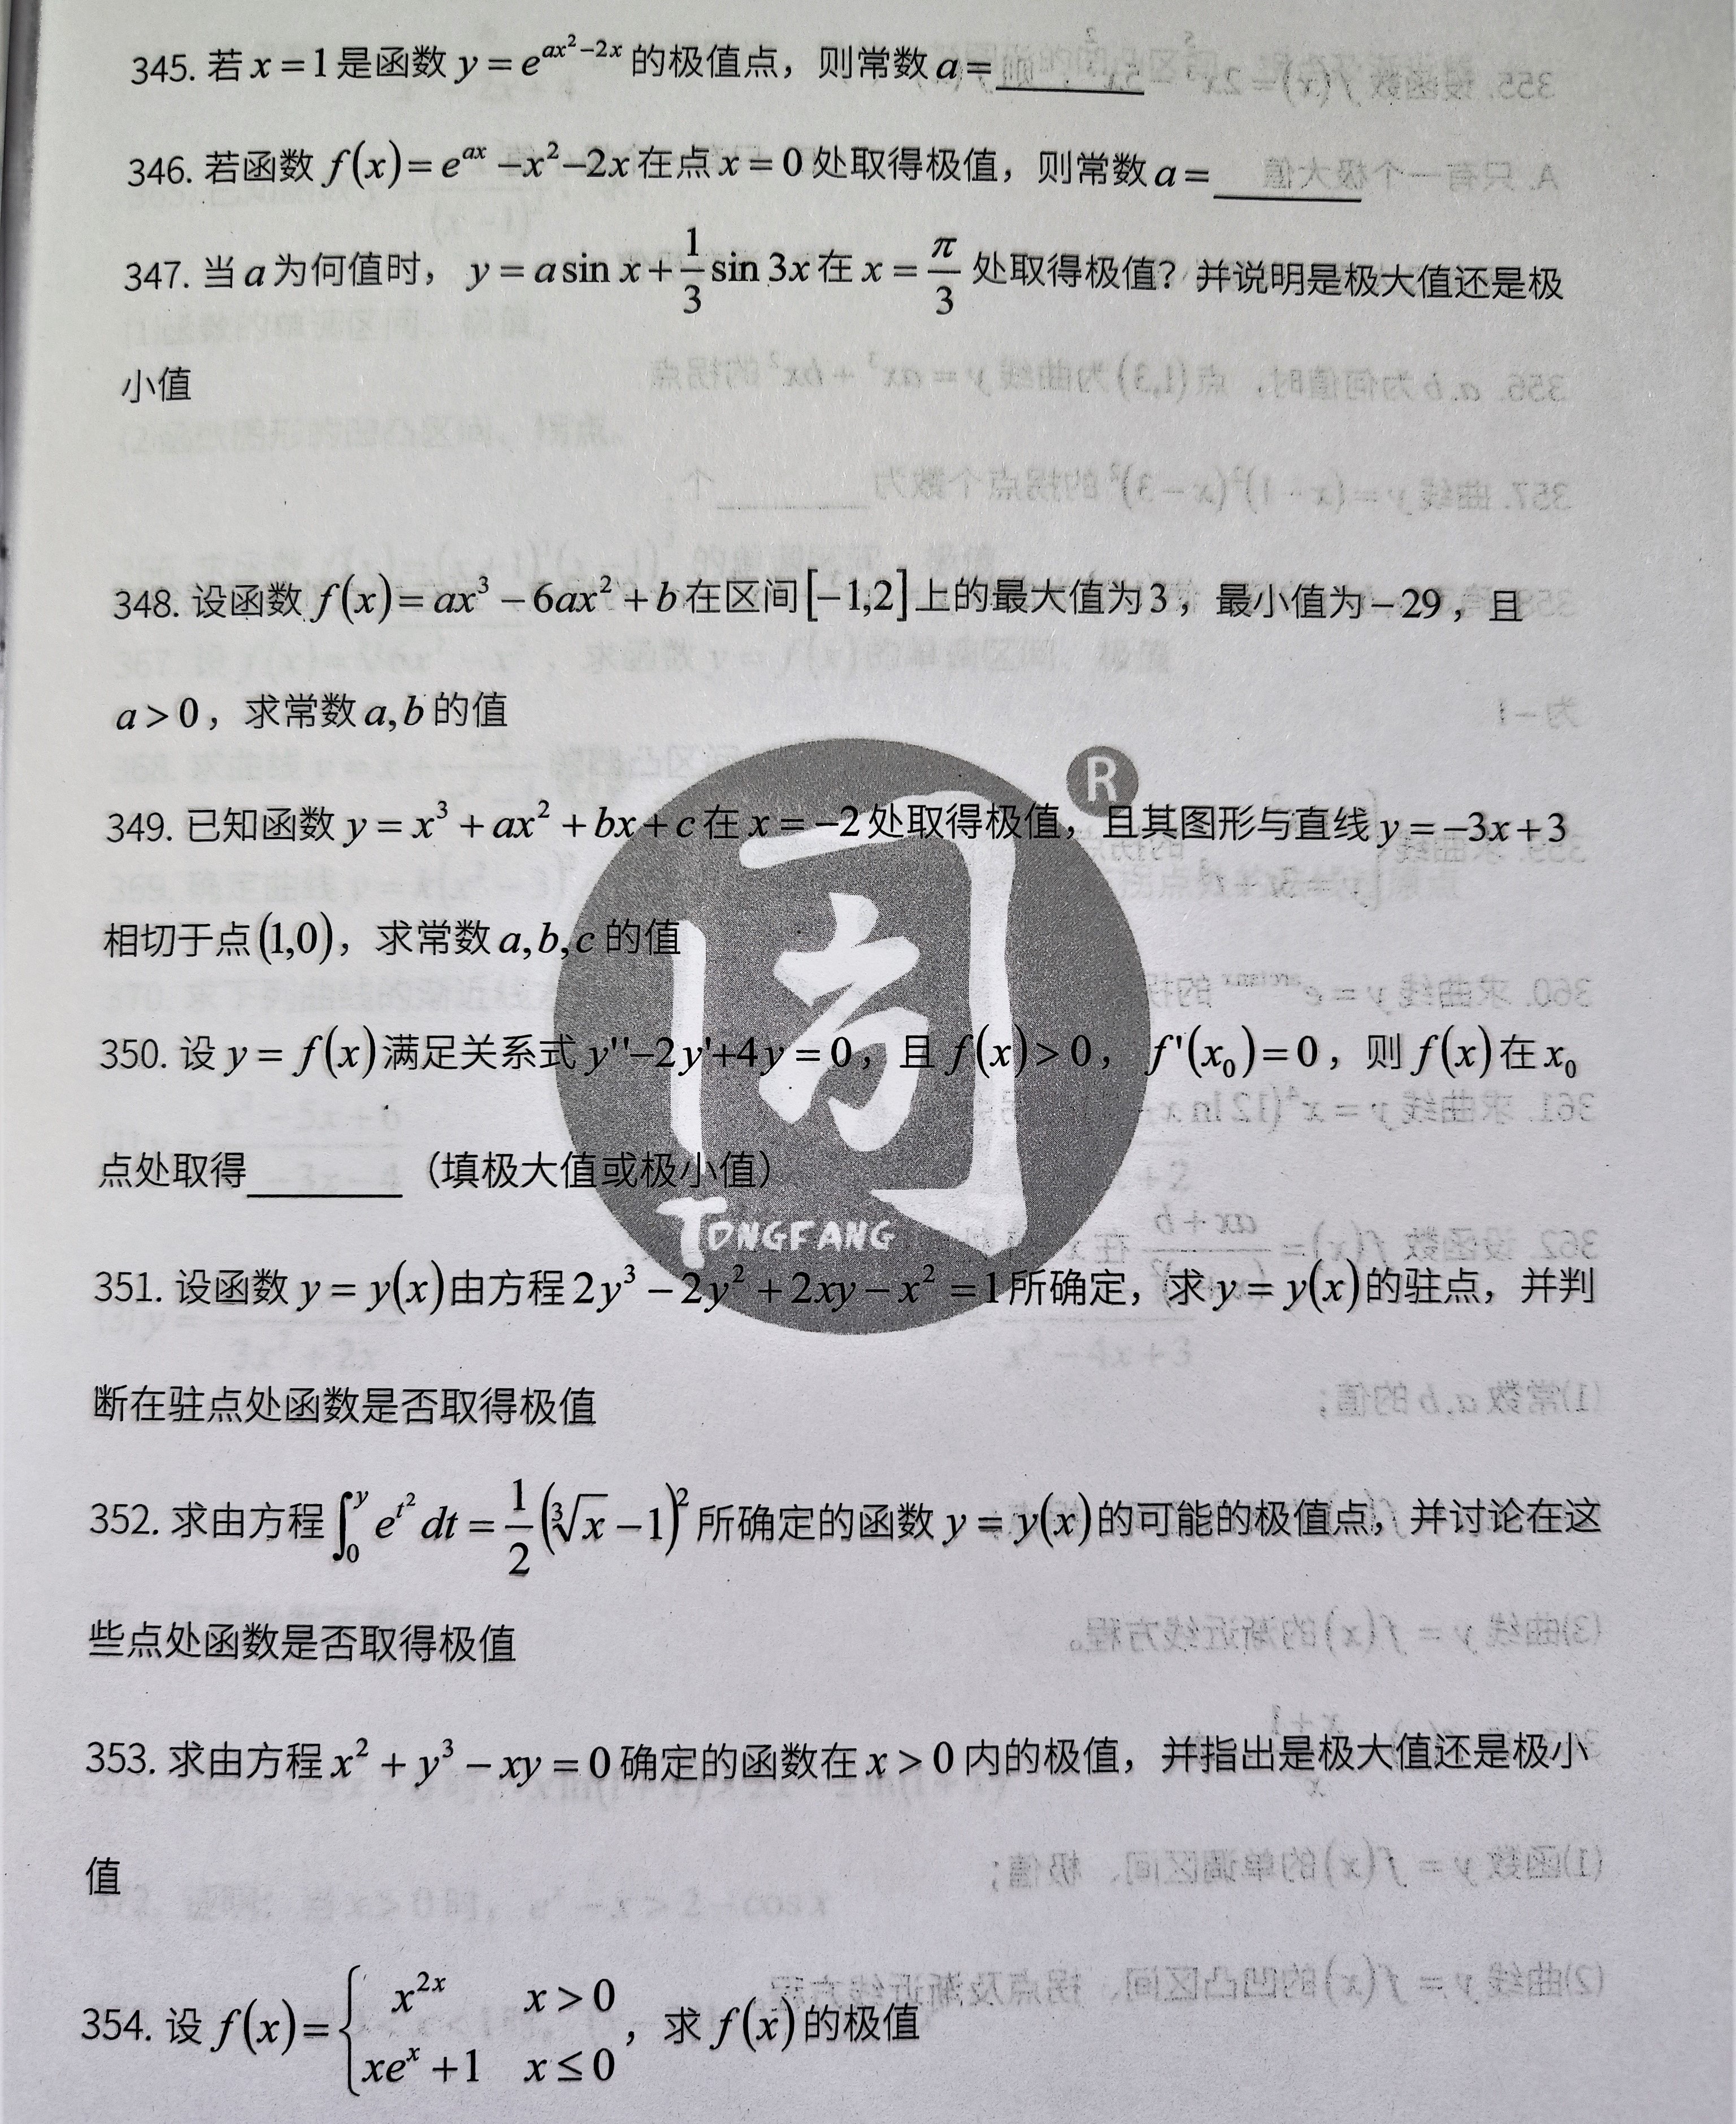 345. 若 x = 1 是函数 y = e^{ax²−2x} 的极值点，则常数 a = ______
346. 若函数 f(x) = e^{ax} − x² − 2x 在点 x = 0 处取得极值，则常数 a = ______
347. 当 a 为何值时，y = a sin x + \frac{1}{3} sin 3x 在 x = \frac{π}{3} 处取得极值？并说明是极大值还是极
小值
348. 设函数 f(x) = ax³ − 6ax² + b 在区间 [−1,2] 上的最大值为 3，最小值为 −29，且
a > 0，求常数 a,b 的值
349. 已知函数 y = x³ + ax² + bx + c 在 x = −2 处取得极值，且其图形与直线 y = −3x + 3
相切于点 (1,0)，求常数 a,b,c 的值
350. 设 y = f(x) 满足关系式 y''−2y'+4y = 0，且 f(x) > 0，f'(x₀) = 0，则 f(x) 在 x₀
点处取得______（填极大值或极小值）
TONGFANG
351. 设函数 y = y(x) 由方程 2y³ − 2y² + 2xy − x² = 1 所确定，求 y = y(x) 的驻点，并判
断在驻点处函数是否取得极值
352. 求由方程 ∫_0^y e^{t²} dt = \frac{1}{2}(∛x − 1)² 所确定的函数 y = y(x) 的可能的极值点，并讨论在这
些点处函数是否取得极值
353. 求由方程 x² + y³ − xy = 0 确定的函数在 x > 0 内的极值，并指出是极大值还是极小
值
354. 设 f(x) = { x^{2x}  x > 0
xe^x + 1  x ≤ 0 ，求 f(x) 的极值